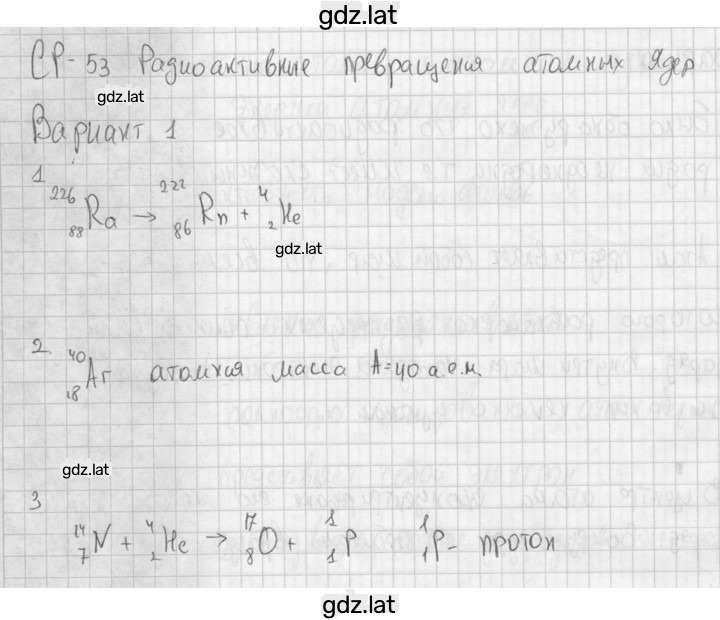 gdz.lat
СР-53 Радиоактивные превращения атомных ядер
gdz.lat
Вариант 1
1
²²⁶₈₈Ra → ²²²₈₆Rn + ⁴₂He
gdz.lat
2. ⁴⁰₁₈Ar атомная масса A=40 а.е.м.
gdz.lat
3
¹⁴₇N + ⁴₂He → ¹⁷₈O + ¹₁P ¹₁P - протон
gdz.lat